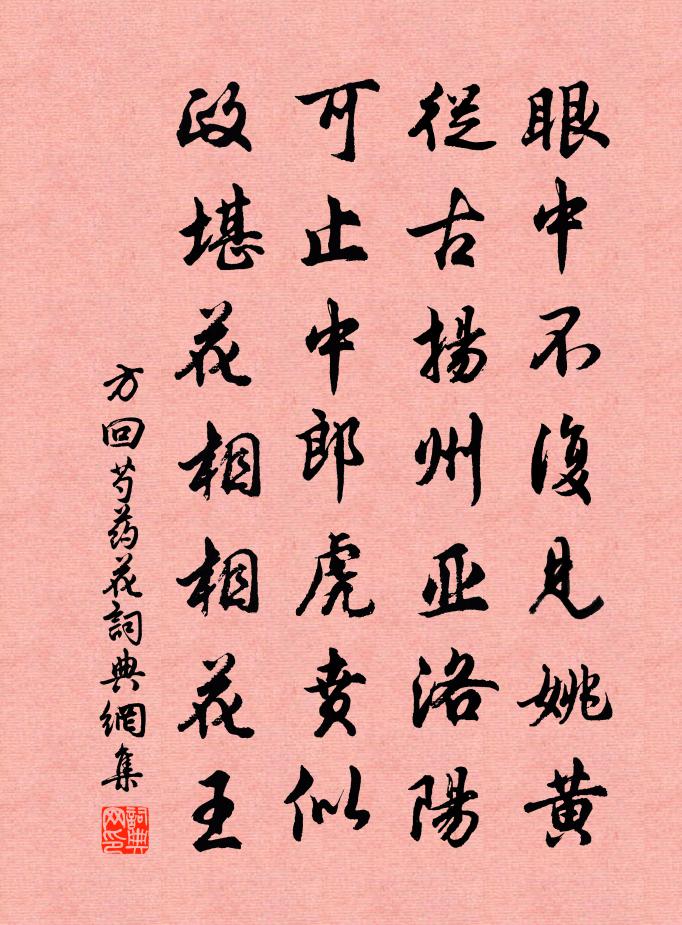 眼中不復見姚黄
從古揚州亚洛陽
可止中郎虎賁似
政堪花相相花王
方回芍药花詞典網集
詞典网印